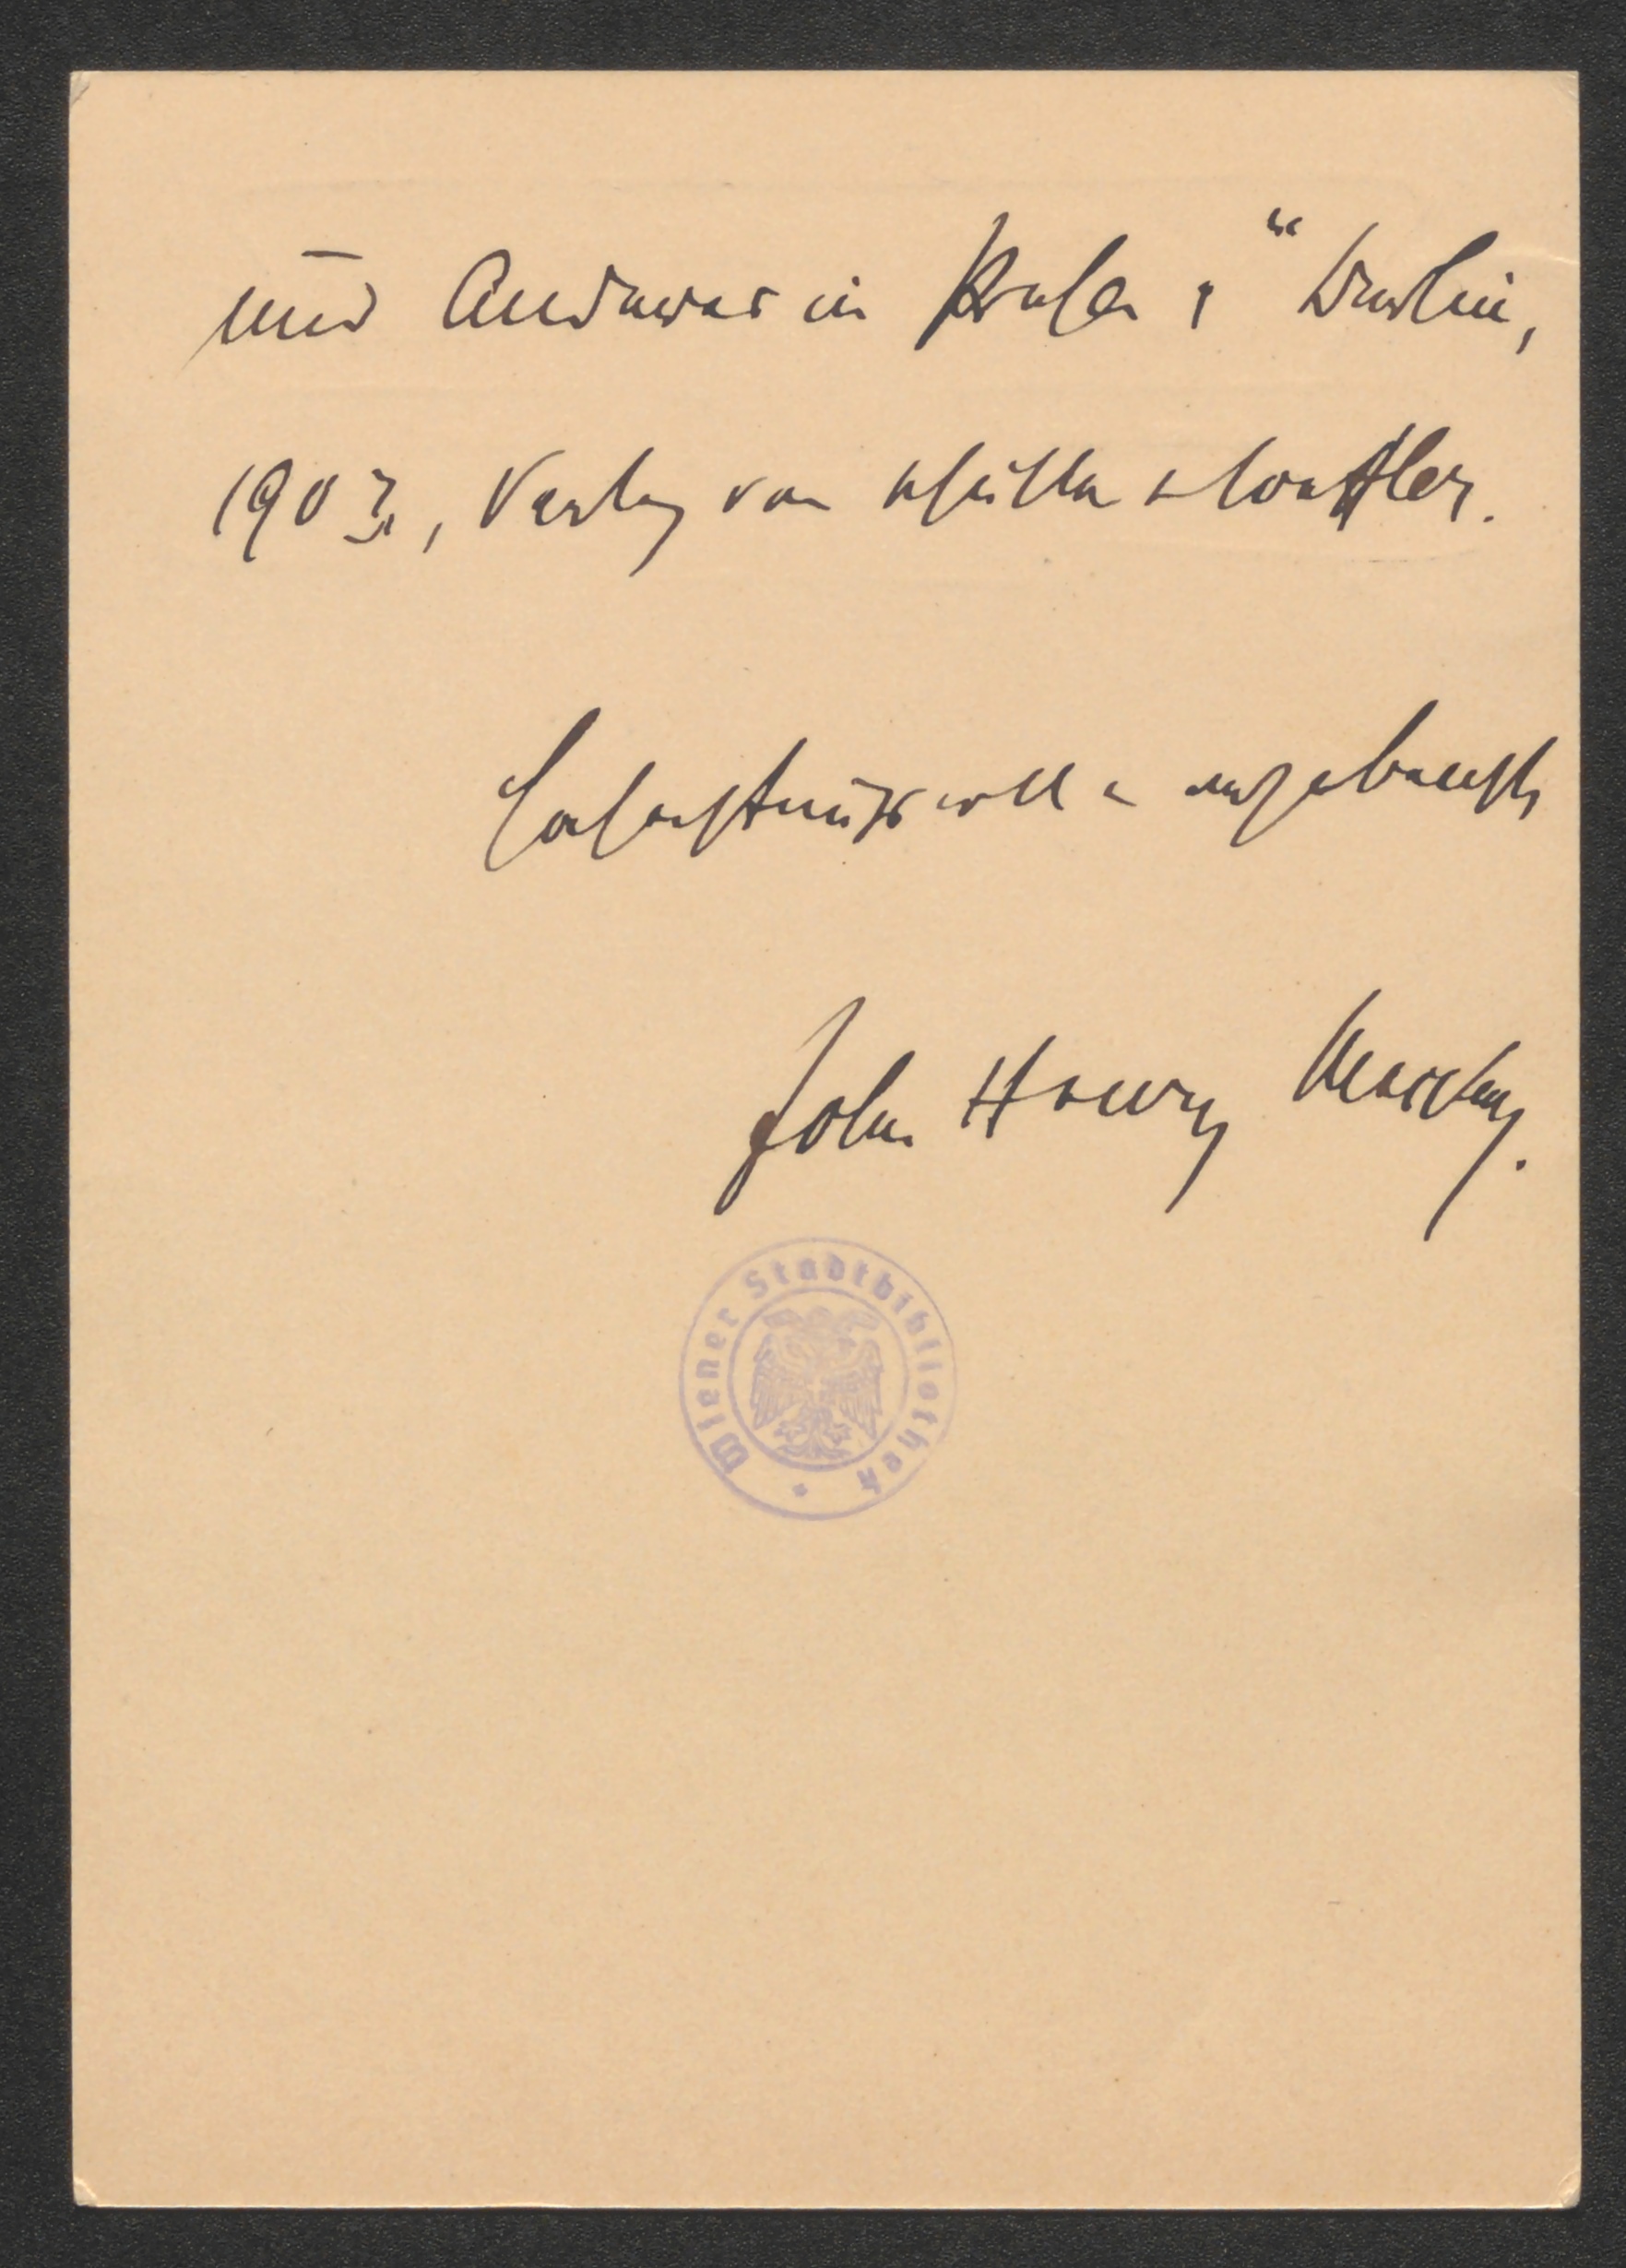 und Anderes in Prosa;“ Berlin,
1903, Verlag von Schuster & Loeffler.
hochachtungsvoll u ergebenst
John Henry Mackay.
Wiener Stadtbibliothek